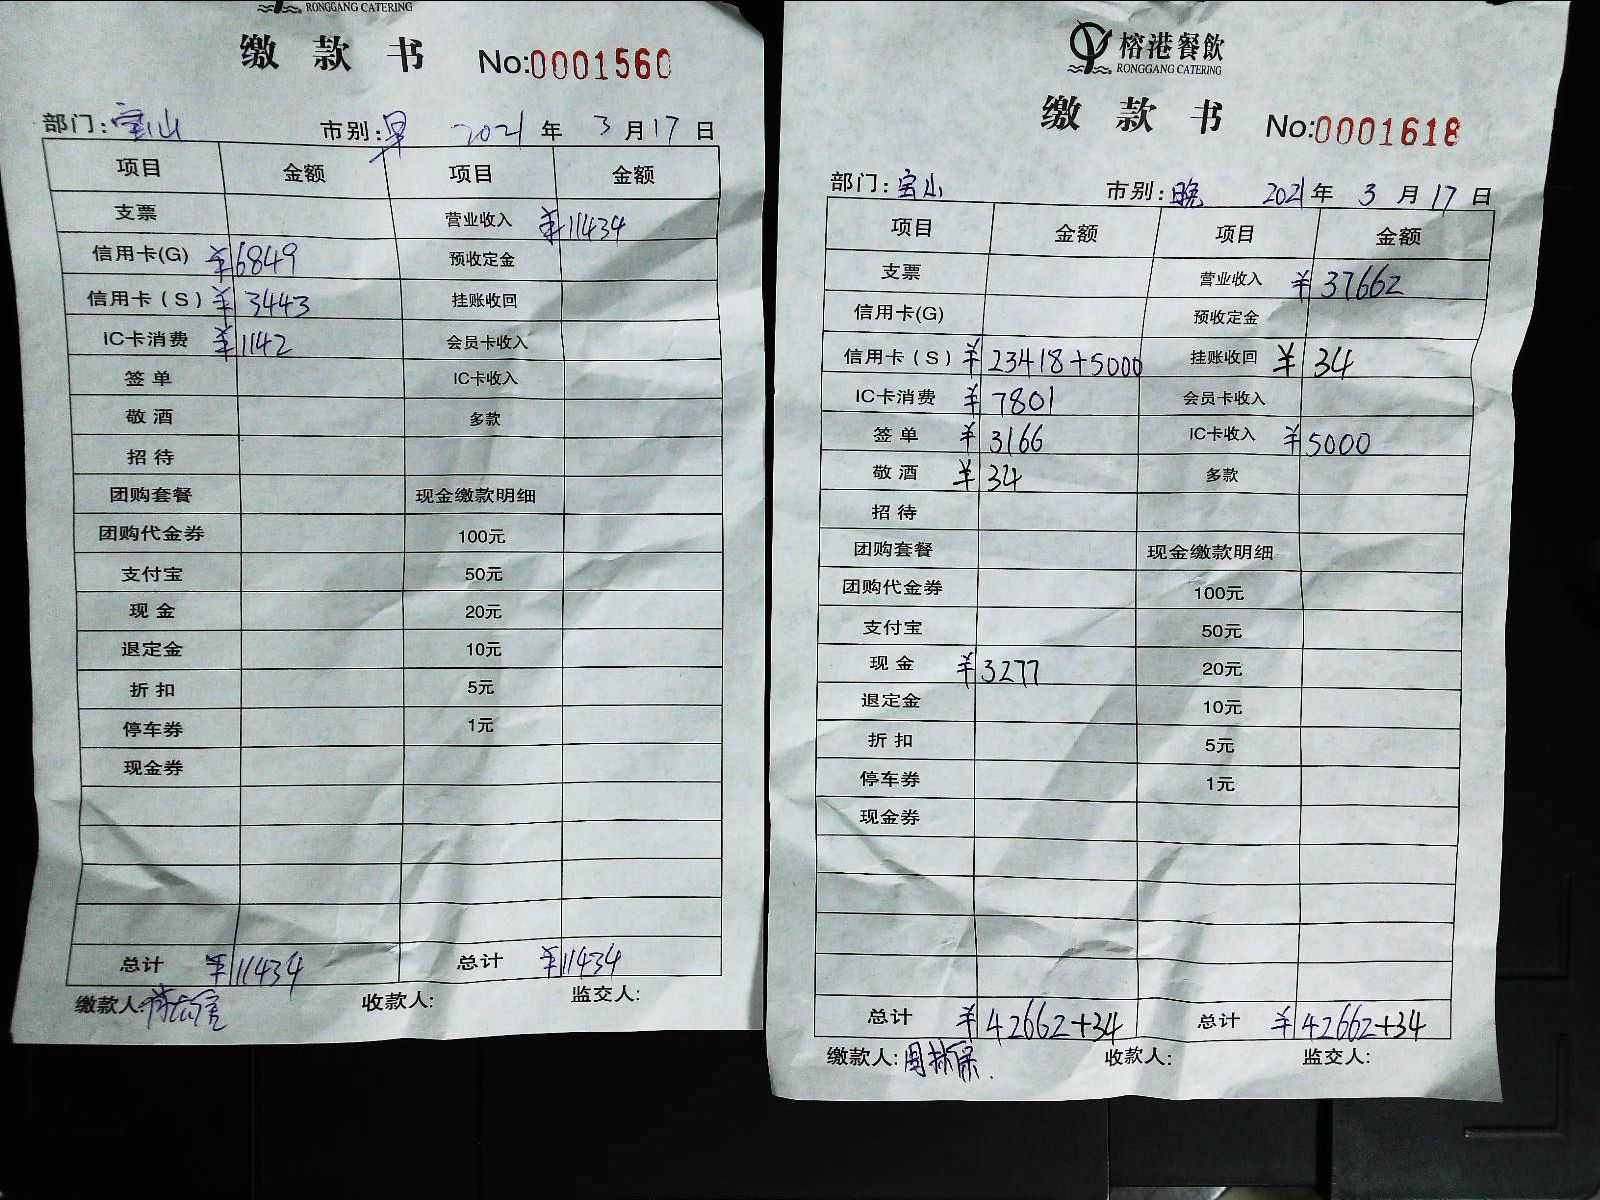 RONGGANG CATERING
缴款书 No:0001560
部门:宝山 市别:早 2021年3月17日
项目 金额 项目 金额
支票 营业收入 ¥11434
信用卡(G) ¥6849 预收定金
信用卡(S) ¥3443 挂账收回
IC卡消费 ¥1142 会员卡收入
签单 IC卡收入
敬酒 多款
招待
团购套餐 现金缴款明细
团购代金券 100元
支付宝 50元
现金 20元
退定金 10元
折扣 5元
停车券 1元
现金券
总计 ¥11434 总计 ¥11434
缴款人: 收款人: 监交人:
榕港餐飲
RONGGANG CATERING
缴款书 No:0001618
部门:宝山 市别:晚 2021年3月17日
项目 金额 项目 金额
支票 营业收入 ¥37662
信用卡(G) 预收定金
信用卡(S) ¥23418+5000 挂账收回 ¥34
IC卡消费 ¥7801 会员卡收入
签单 ¥3166 IC卡收入 ¥5000
敬酒 ¥34 多款
招待
团购套餐 现金缴款明细
团购代金券 100元
支付宝 50元
现金 ¥3277 20元
退定金 10元
折扣 5元
停车券 1元
现金券
总计 ¥42662+34 总计 ¥42662+34
缴款人: 收款人: 监交人: